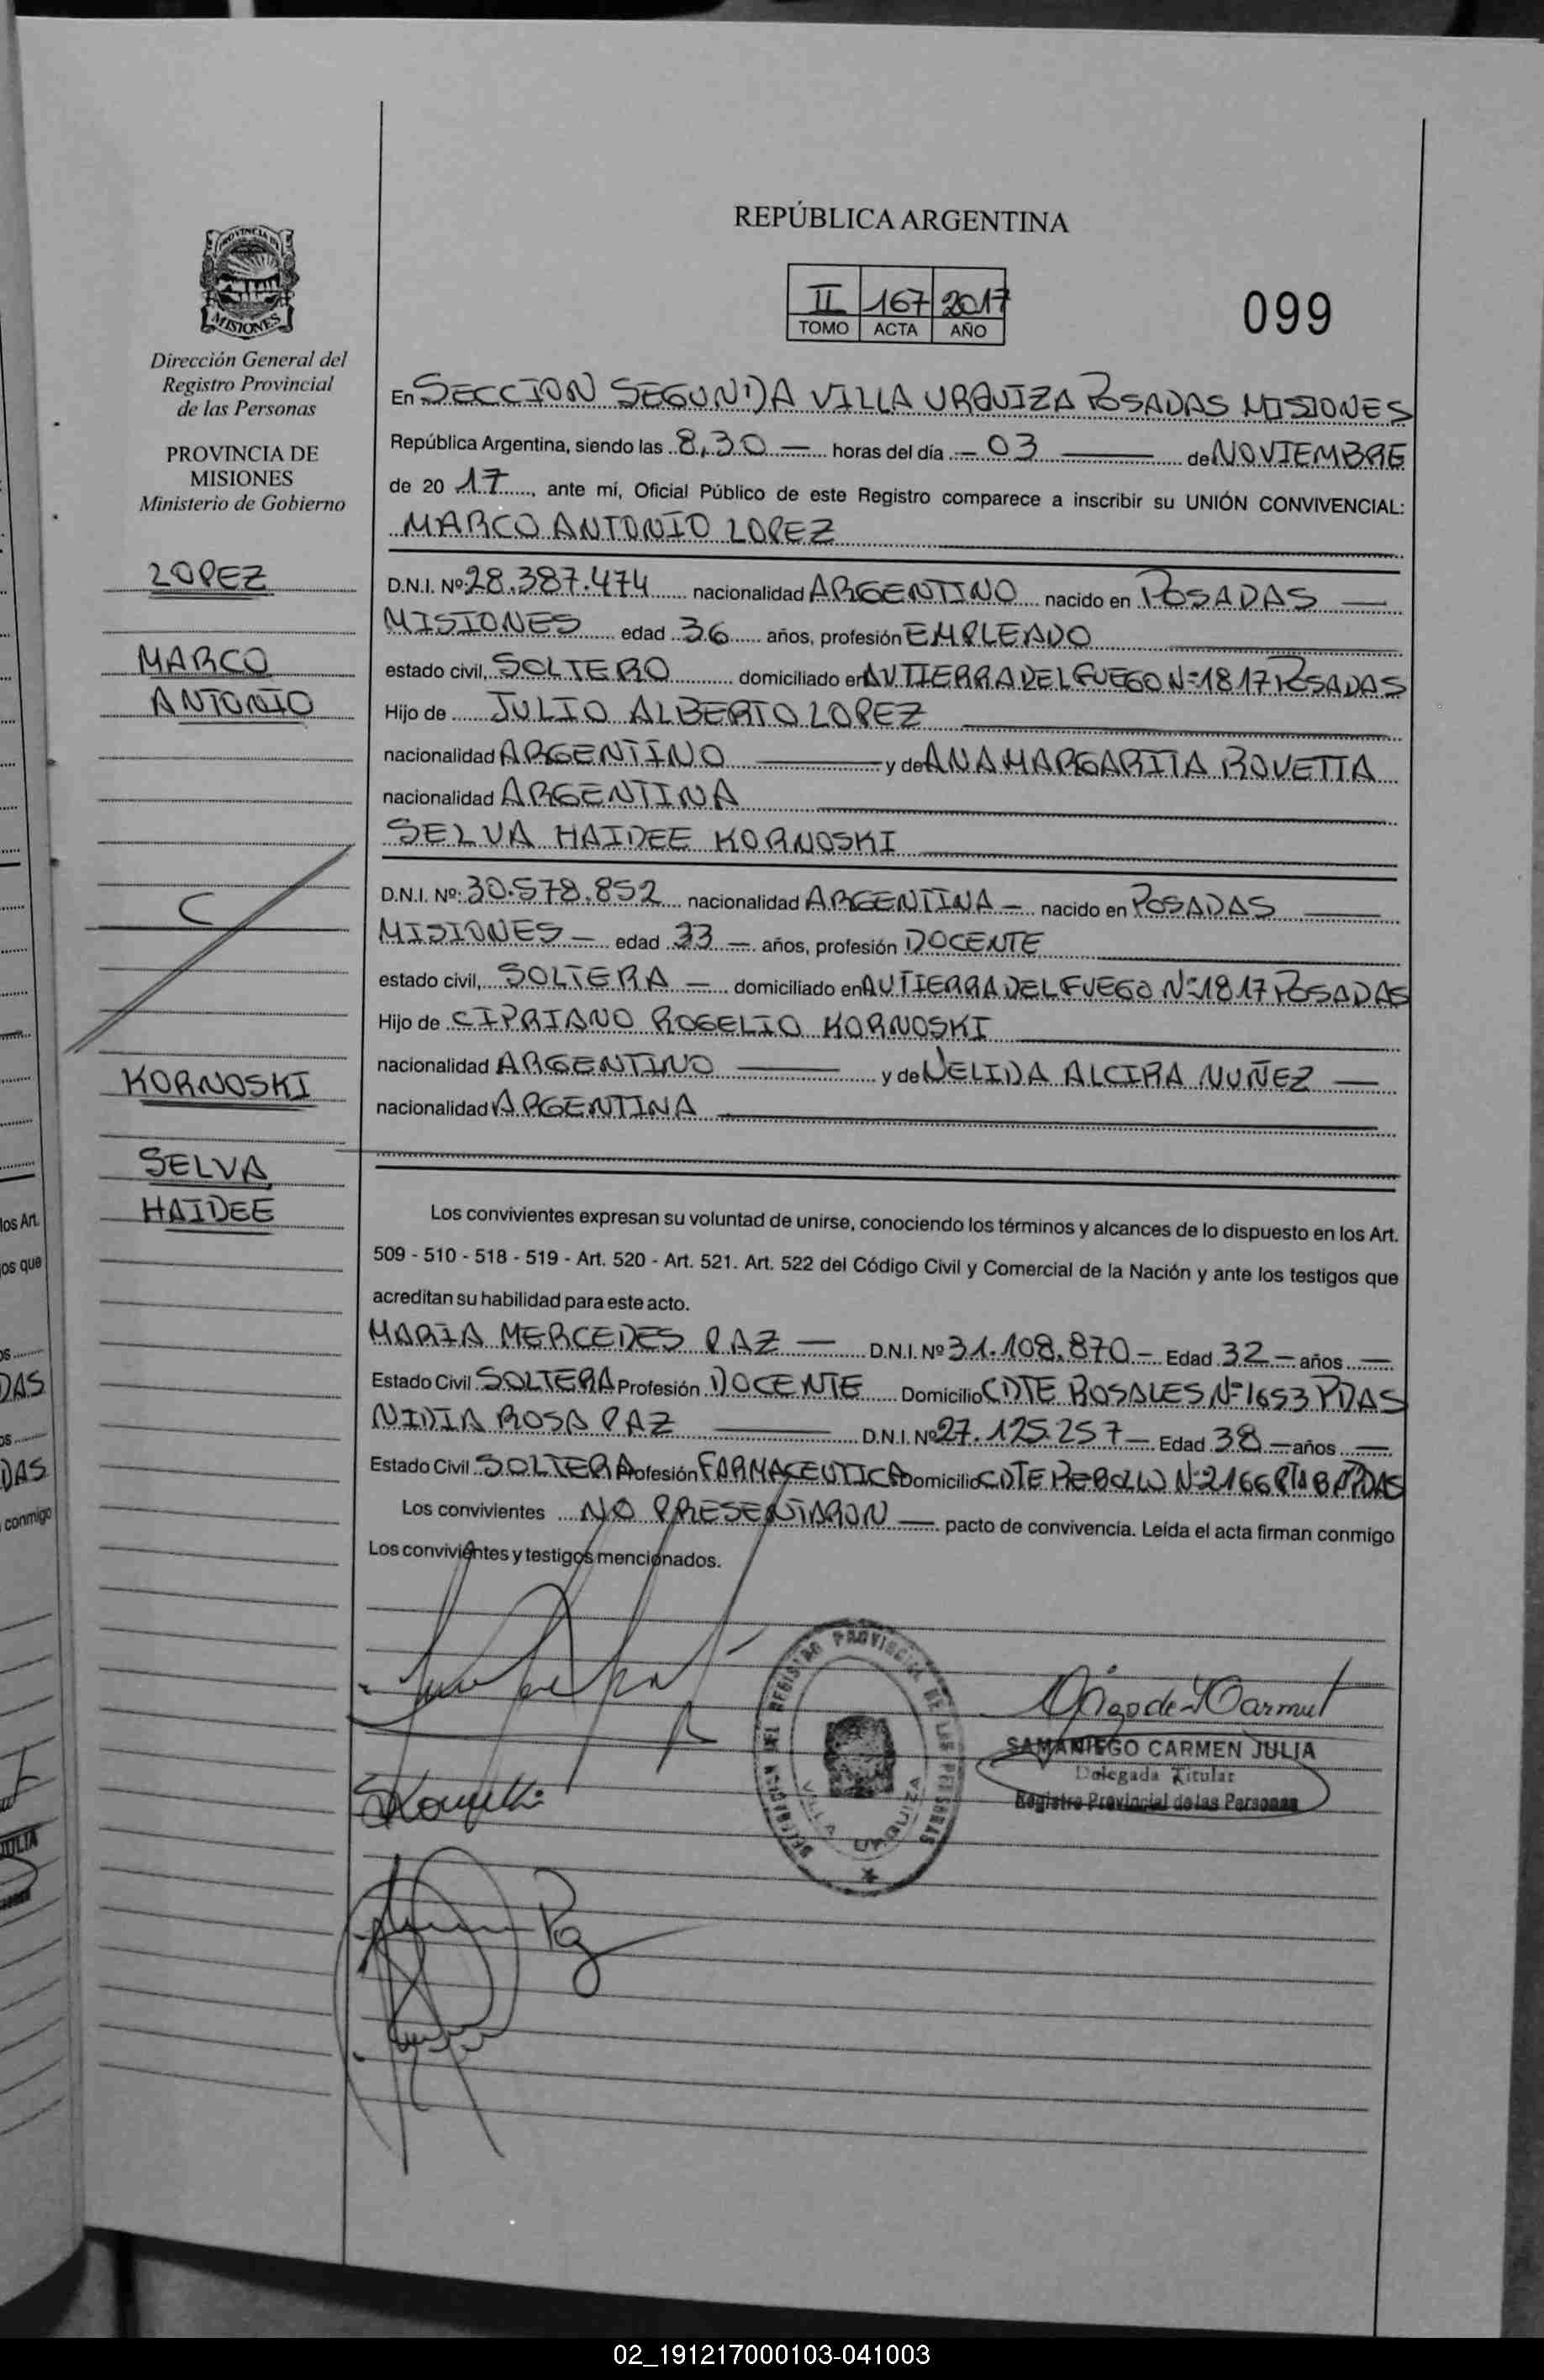 REPÚBLICA ARGENTINA
II 167 2017
TOMO ACTA AÑO
099
MISIONES
Dirección General del
Registro Provincial
de las Personas
PROVINCIA DE
MISIONES
Ministerio de Gobierno
LOPEZ
MARCO
ANTONIO
C
KORNOSKI
SELVA
HAIDEE
En SECCION SEGUNDA VILLA URQUIZA POSADAS MISIONES
República Argentina, siendo las 8,30 — horas del día — 03 — de NOVIEMBRE
de 20 17, ante mí, Oficial Público de este Registro comparece a inscribir su UNIÓN CONVIVENCIAL:
MARCO ANTONIO LOPEZ
D.N.I. Nº: 28.387.474 nacionalidad ARGENTINO nacido en POSADAS —
MISIONES edad 36 años, profesión EMPLEADO
estado civil, SOLTERO domiciliado en AV TIERRA DEL FUEGO Nº 1817 POSADAS
Hijo de JULIO ALBERTO LOPEZ
nacionalidad ARGENTINO — y de ANA MARGARITA ROVETTA
nacionalidad ARGENTINA
SELVA HAIDEE KORNOSKI
D.N.I. Nº: 30.578.852 nacionalidad ARGENTINA — nacido en POSADAS —
MISIONES — edad 33 — años, profesión DOCENTE
estado civil, SOLTERA — domiciliado en AV TIERRA DEL FUEGO Nº 1817 POSADAS
Hijo de CIPRIANO ROGELIO KORNOSKI
nacionalidad ARGENTINO — y de NELIDA ALCIRA NUÑEZ —
nacionalidad ARGENTINA —
Los convivientes expresan su voluntad de unirse, conociendo los términos y alcances de lo dispuesto en los Art.
509 - 510 - 518 - 519 - Art. 520 - Art. 521. Art. 522 del Código Civil y Comercial de la Nación y ante los testigos que
acreditan su habilidad para este acto.
MARIA MERCEDES PAZ — D.N.I. Nº 31.108.870 — Edad 32 — años —
Estado Civil SOLTERA Profesión DOCENTE Domicilio CDTE ROSALES Nº 1653 PDAS
NIDIA ROSA PAZ — D.N.I. Nº 27.125.257 — Edad 38 — años —
Estado Civil SOLTERA Profesión FARMACEUTICA Domicilio CDTE REBOLLO Nº 2166 PDAS
Los convivientes NO PRESENTARON — pacto de convivencia. Leída el acta firman conmigo
Los convivientes y testigos mencionados.
DELEGACION DEL REGISTRO PROVINCIAL DE LAS PERSONAS
VILLA URQUIZA
SAMANIEGO CARMEN JULIA
Delegada Titular
Registro Provincial de las Personas
los Art.
os que
DAS
DAS
conmigo
JULIA
02_191217000103-041003